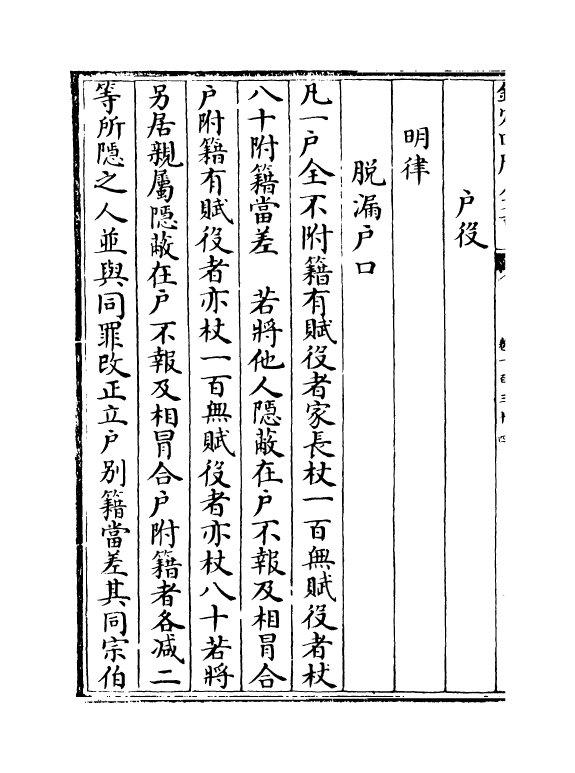 户役
明律
脱漏户口
凡一户全不附籍有賦役者家長杖一百無賦役者杖
八十附籍當差　若將他人隠蔽在户不報及相冒合
户附籍有賦役者亦杖一百無賦役者亦杖八十若將
另居親屬隠蔽在户不報及相冒合户附籍者各减二
等所隠之人並與同罪改正立户别籍當差其同宗伯